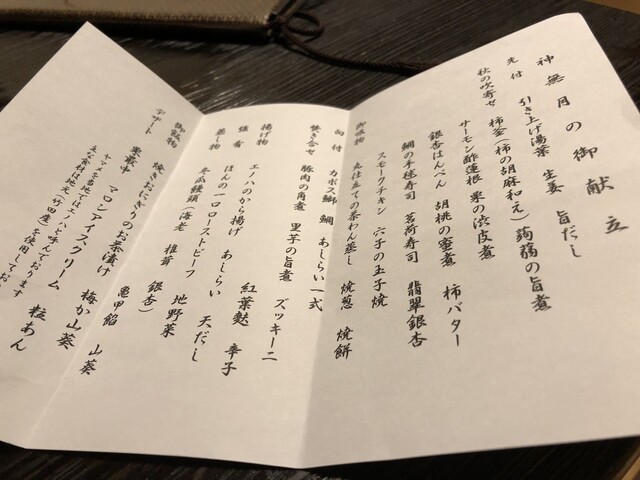 神無月の御献立
先付　引き上げ湯葉　生姜　旨だし
秋の吹寄せ　柿釜（柿の胡麻和え）蒟蒻の旨煮
サーモン酢蓮根　栗の渋皮煮
銀杏はんぺん　胡桃の蜜煮　柿バター
鯛の手毬寿司　茗荷寿司　翡翠銀杏
スモークチキン　穴子の玉子焼
御吸物　丸仕立ての茶わん蒸し　焼葱　焼餅
向付　カボス鰤　鯛　あしらい一式
焚き合せ　豚肉の角煮　里芋の旨煮　ズッキーニ
紅葉麩　辛子
揚げ物　エノハのから揚げ　あしらい　天だし
強肴　ほんの一口ローストビーフ　地野菜
蒸し物　冬瓜饅頭（海老　椎茸　銀杏）
亀甲餡　山葵
御飯物　焼きおにぎりのお茶漬け　梅か山葵
デザート　栗最中　マロンアイスクリーム　粒あん
ヤマメを当地ではエノハと呼んでおります
主な食材は地元（竹田産）を使用してお